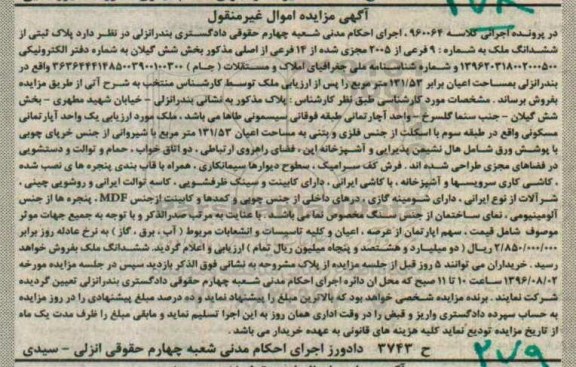 ۲۷۸
آگهی مزایده اموال غیرمنقول
در پرونده اجرائی کلاسه ۹۶۰۰۶۴ . اجرای احکام مدنی شعبه چهارم حقوقی دادگستری بندرانزلی در نظر دارد پلاک ثبتی از
ششدانگ ملک به شماره : ۹ فرعی از ۲۰۰۵ مجزی شده از ۱۴ فرعی از اصلی مذکور بخش شش گیلان به شماره دفتر الکترونیکی
۱۳۹۶۲۰۳۱۸۰۰۲۰۰۰۵۰۰ و شماره شناسنامه ملی جغرافیای املاک و مستقلات ( جـام ) واقع در
بندرانزلی بمساحت اعیان برابر ۱۳۱/۵۳ متر مربع را پس از ارزیابی ملک توسط کارشناس منتخب به شـرح آتی از طریق مزایده
بفروش برساند . مشخصات مورد کارشناسی طبق نظر کارشناس : پلاک مذکور به نشانی بندرانزلی - خیابان شهید مطهری - بخش
شش گیلان - جنب سنما گلسرخ - واحد آپارتمانی طبقه فوقانی سیسمونی طاها می باشد . ملک مورد ارزیابی یک واحد آپارتمانی
مسکونی واقع در طبقه سوم با اسکلت از جنس فلزی و بتنی به مساحت اعیان ۱۳۱/۵۳ متر مربع با شیروانی از جنس خرپای چوبی
با پوشش ورق شامل هال نشیمن پذیرایی و آشپزخانه اپن ، فضای راهروی ارتباطی ، دو اتاق خواب ، حمام و توالت و دستشویی
در فضاهای مجزی طراحی شده اند . فرش کف سرامیک ، سطوح دیوارها سیمانکاری ، همراه با قاب بندی پنجره ها ی نصب شده
، کاشی کاری سرویسها و آشپزخانه ، با کاشی ایرانی ، دارای کابینت و سینک ظرفشویی . کاسه توالت ایرانی و روشویی چینی ،
شـرآلات از نوع ایرانی ، دارای شومینه گازی ، درهای داخلی از جنس چوبی و کمدها و کابینت ازجنس MDF . پنجره ها از جنس
آلومینیومی . نمای ساختمان از جنس سنگ مخصوص نما می باشد . با عنایت به مرتب صدرالذکر و با توجه به جمیع جهات موثر
موصوف شامل قیمت ، سهم آپارتمان از عرصه ، اعیان و کلیه تاسیسات و انشعابات مربوط ( آب ، برق ، گاز ) به نرخ عادله روز برابر
۲/۸۵۰/۰۰۰/۰۰۰ ریـال ( دو میلیارد و هشتصد و پنجاه میلیون ریال تمام ) ارزیابی و اعلام گردید. ششدانگ ملک بفروش خواهد
رسید . خریداران می توانند ۵ روز قبل از جلسه مزایده از پلاک مشروحه به نشانی فوق الذکر بازدید سپس در جلسه مزایده مورخه
۱۳۹۶/۰۸/۰۲ ساعت ۱۰ تا ۱۱ صبح که محل آن دائره اجرای احکام مدنی شـعبه چهارم حقوقی دادگستری بندرانزلی تعیین گردیده
شرکت نمایند . برنده مزایده شخصی خواهد بود که بالاترین مبلغ را پیشنهاد نماید و ده درصد مبلغ پیشنهادی را در روز مزایده
به حساب سپرده دادگستری واریز و قبض را در وقت اداری همان روز به این اجرا تسلیم نماید و مابقی مبلغ را ظرف مدت یک ماه
از تاریخ مزایده تودیع نماید کلیه هزینه های قانونی به عهده خریدار می باشد .
ح ۳۷۴۳ دادورز اجرای احکام مدنی شعبه چهارم حقوقی انزلی - سیدی
۲۷۹